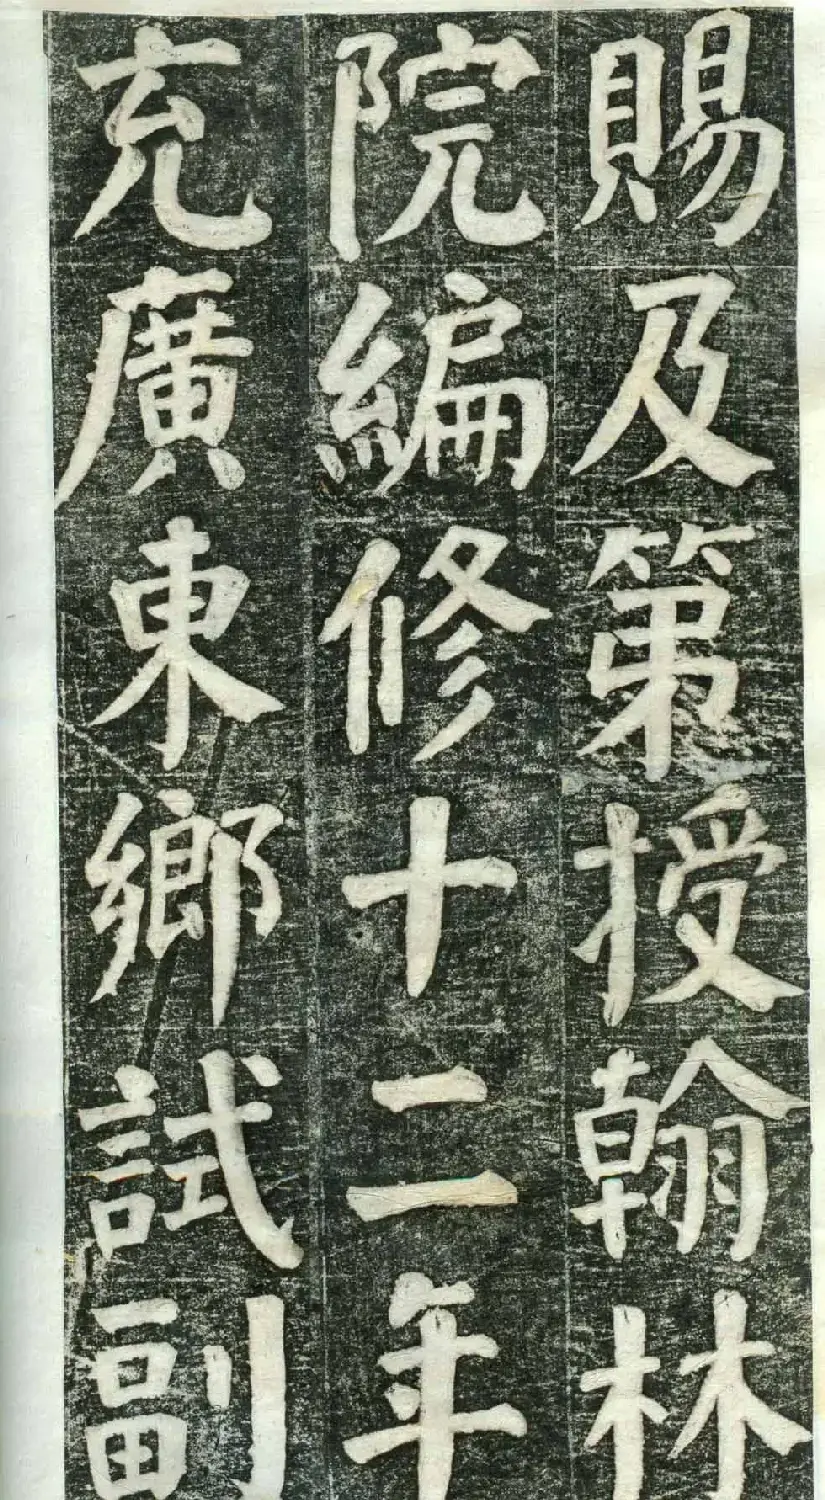 賜及第授翰林
院編修十二年
充廣東鄉試副